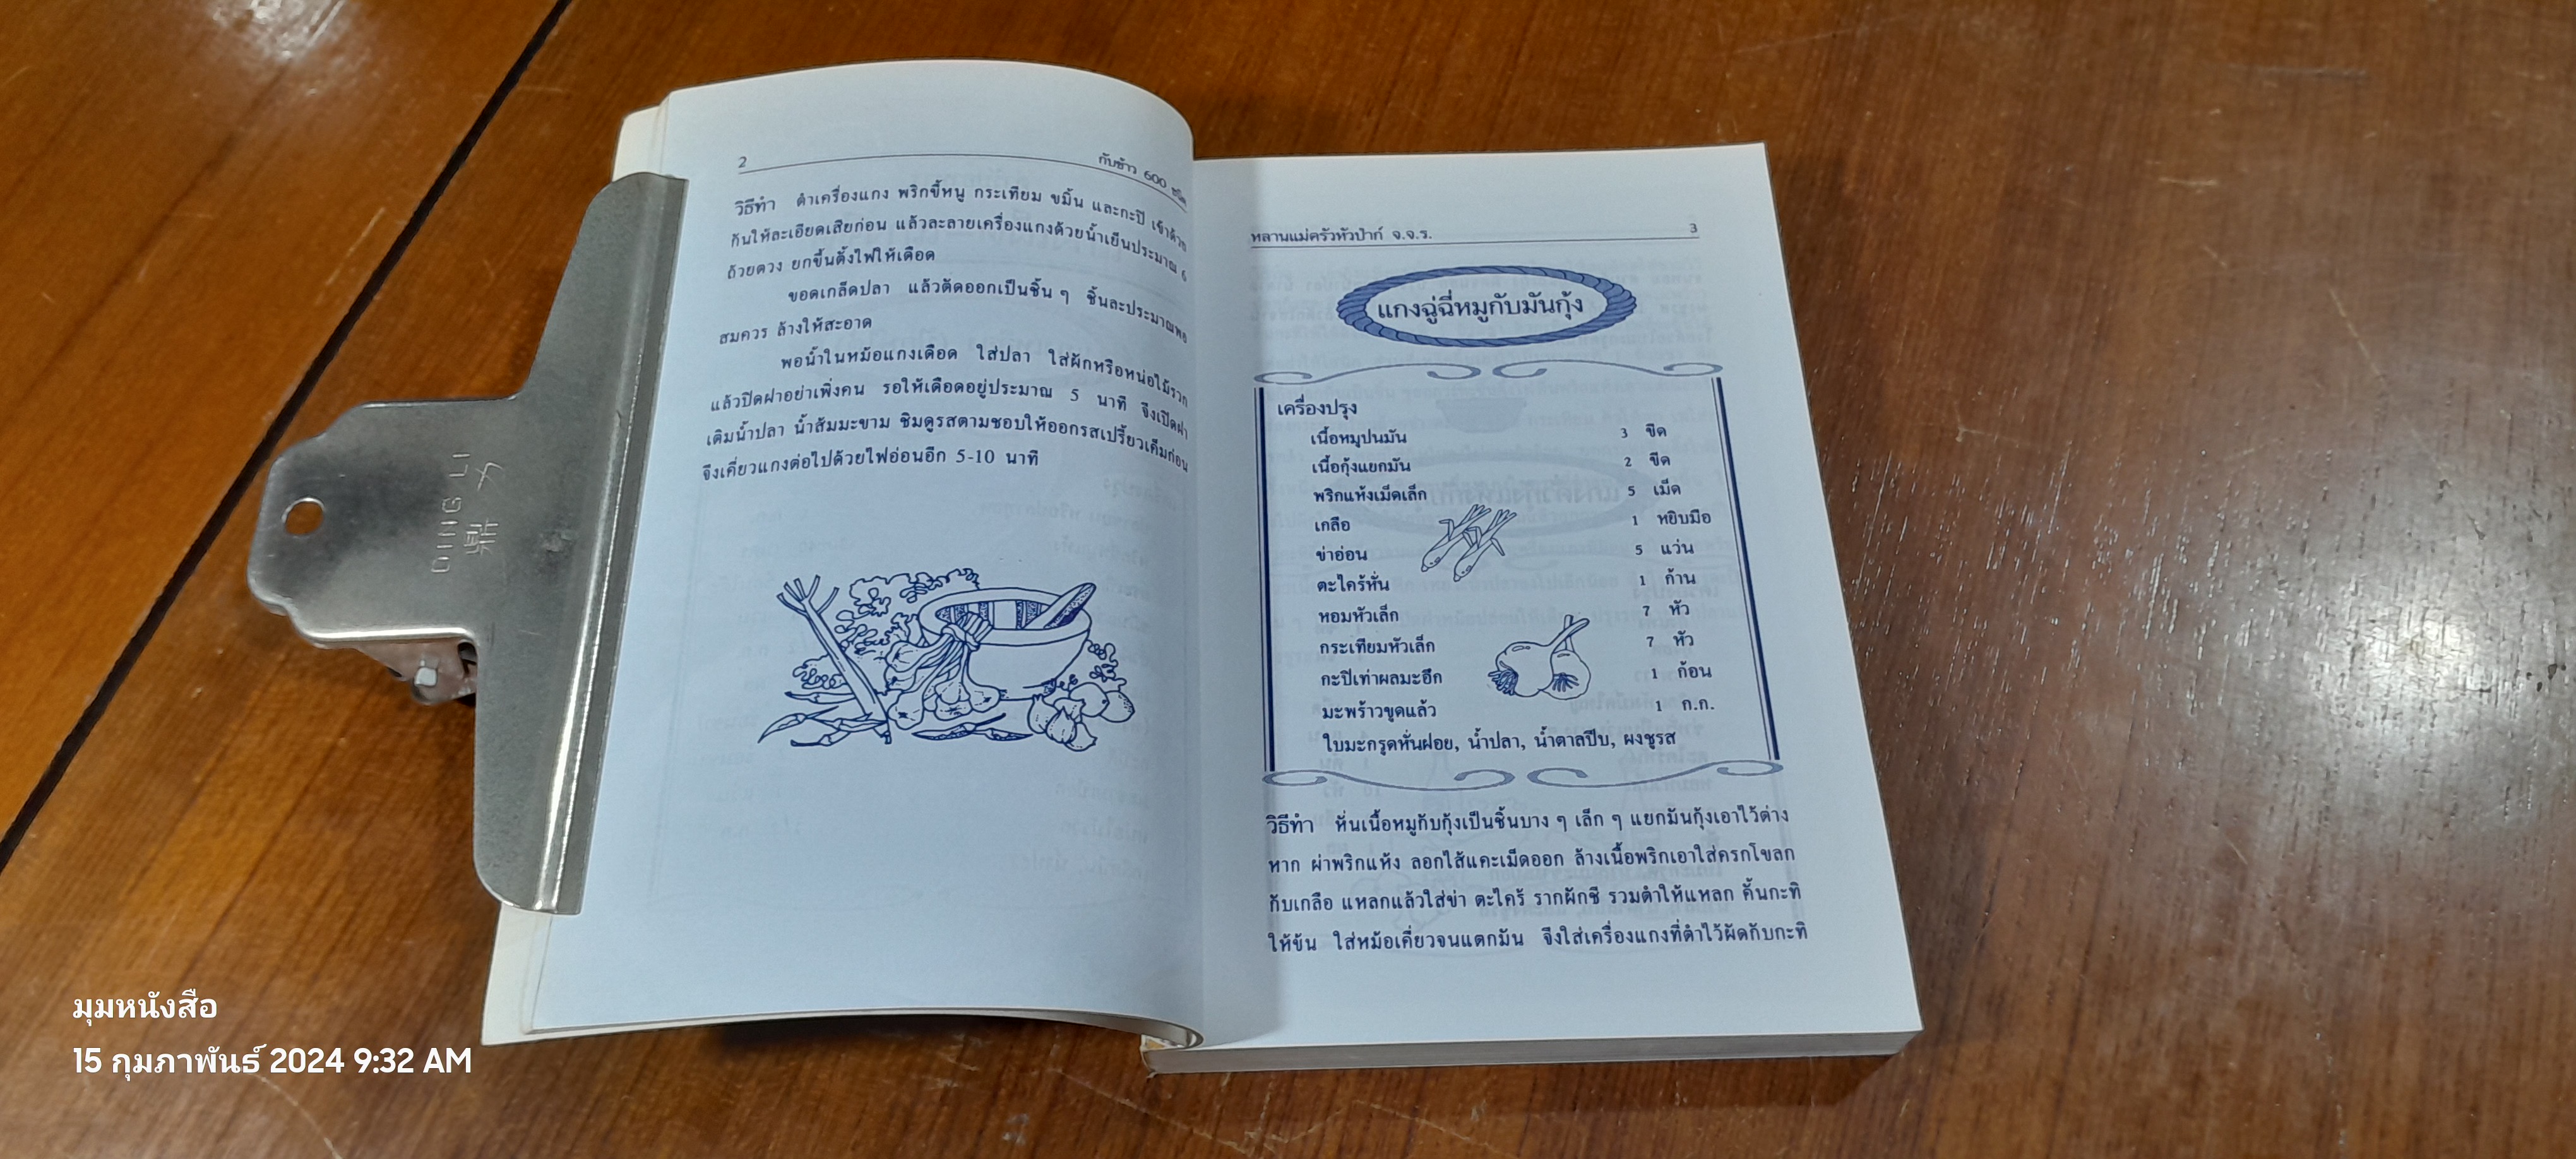 2
กับข้าว 600 ชนิด
วิธีทำ ตำเครื่องแกง พริกขี้หนู กระเทียม ขมิ้น และกะปิ เข้าด้วย
กันให้ละเอียดเสียก่อน แล้วละลายเครื่องแกงด้วยน้ำเย็นประมาณ 6
ถ้วยตวง ยกขึ้นตั้งไฟให้เดือด
ขอดเกล็ดปลา แล้วตัดออกเป็นชิ้น ๆ ชิ้นละประมาณพอ
สมควร ล้างให้สะอาด
พอน้ำในหม้อแกงเดือด ใส่ปลา ใส่ผักหรือหน่อไม้รวก
แล้วปิดฝาอย่าเพิ่งคน รอให้เดือดอยู่ประมาณ 5 นาที จึงเปิดฝา
เติมน้ำปลา น้ำส้มมะขาม ชิมดูรสตามชอบให้ออกรสเปรี้ยวเค็มก่อน
จึงเคี่ยวแกงต่อไปด้วยไฟอ่อนอีก 5-10 นาที
หลานแม่ครัวหัวป่าก์ จ.จ.ร.
3
แกงฉู่ฉี่หมูกับมันกุ้ง
เครื่องปรุง
เนื้อหมูปนมัน 3 ขีด
เนื้อกุ้งแยกมัน 2 ขีด
พริกแห้งเม็ดเล็ก 5 เม็ด
เกลือ 1 หยิบมือ
ข่าอ่อน 5 แว่น
ตะไคร้หั่น 1 ก้าน
หอมหัวเล็ก 7 หัว
กระเทียมหัวเล็ก 7 หัว
กะปิเท่าผลมะอึก 1 ก้อน
มะพร้าวขูดแล้ว 1 ก.ก.
ใบมะกรูดหั่นฝอย, น้ำปลา, น้ำตาลปีบ, ผงชูรส
วิธีทำ หั่นเนื้อหมูกับกุ้งเป็นชิ้นบาง ๆ เล็ก ๆ แยกมันกุ้งเอาไว้ต่าง
หาก ผ่าพริกแห้ง ลอกไส้แคะเม็ดออก ล้างเนื้อพริกเอาใส่ครกโขลก
กับเกลือ แหลกแล้วใส่ข่า ตะไคร้ รากผักชี รวมตำให้แหลก คั้นกะทิ
ให้ข้น ใส่หม้อเคี่ยวจนแตกมัน จึงใส่เครื่องแกงที่ตำไว้ผัดกับกะทิ
DING LI
鼎力
มุมหนังสือ
15 กุมภาพันธ์ 2024 9:32 AM